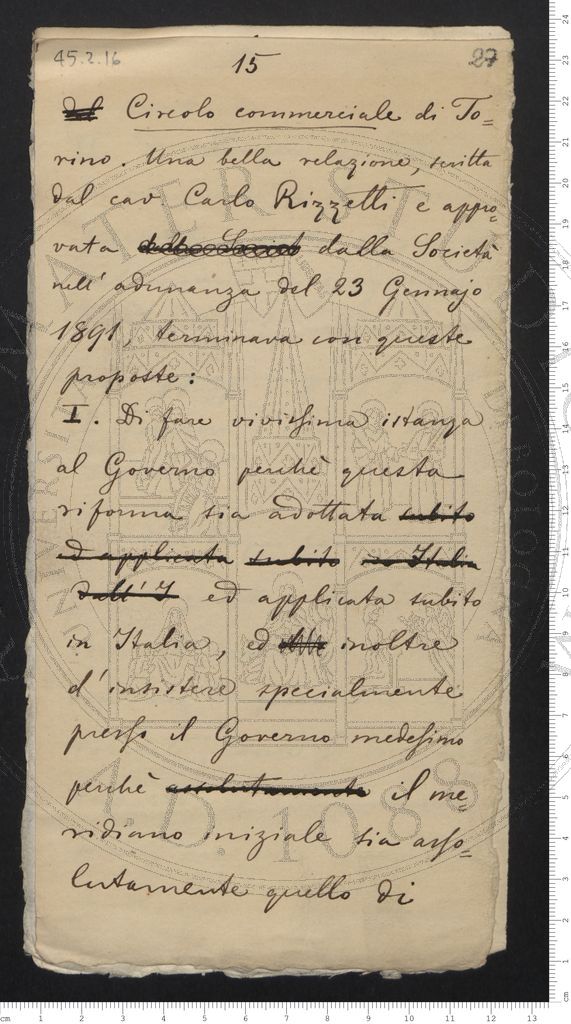 45.2.16
15
27
del Circolo commerciale di To=
rino. Una bella relazione, scritta
dal cav Carlo Rizzetti e appro=
vata dalla Società
nell'adunanza del 23 Gennajo
1891, terminava con queste
proposte:
I. Di fare vivissima istanza
al Governo perchè questa
riforma sia adottata subito
ed applicata subito in Italia
dall' I ed applicata subito
in Italia, ed inoltre
d'insistere specialmente
presso il Governo medesimo
perchè assolutamente il me=
ridiano iniziale sia asso=
lutamente quello di